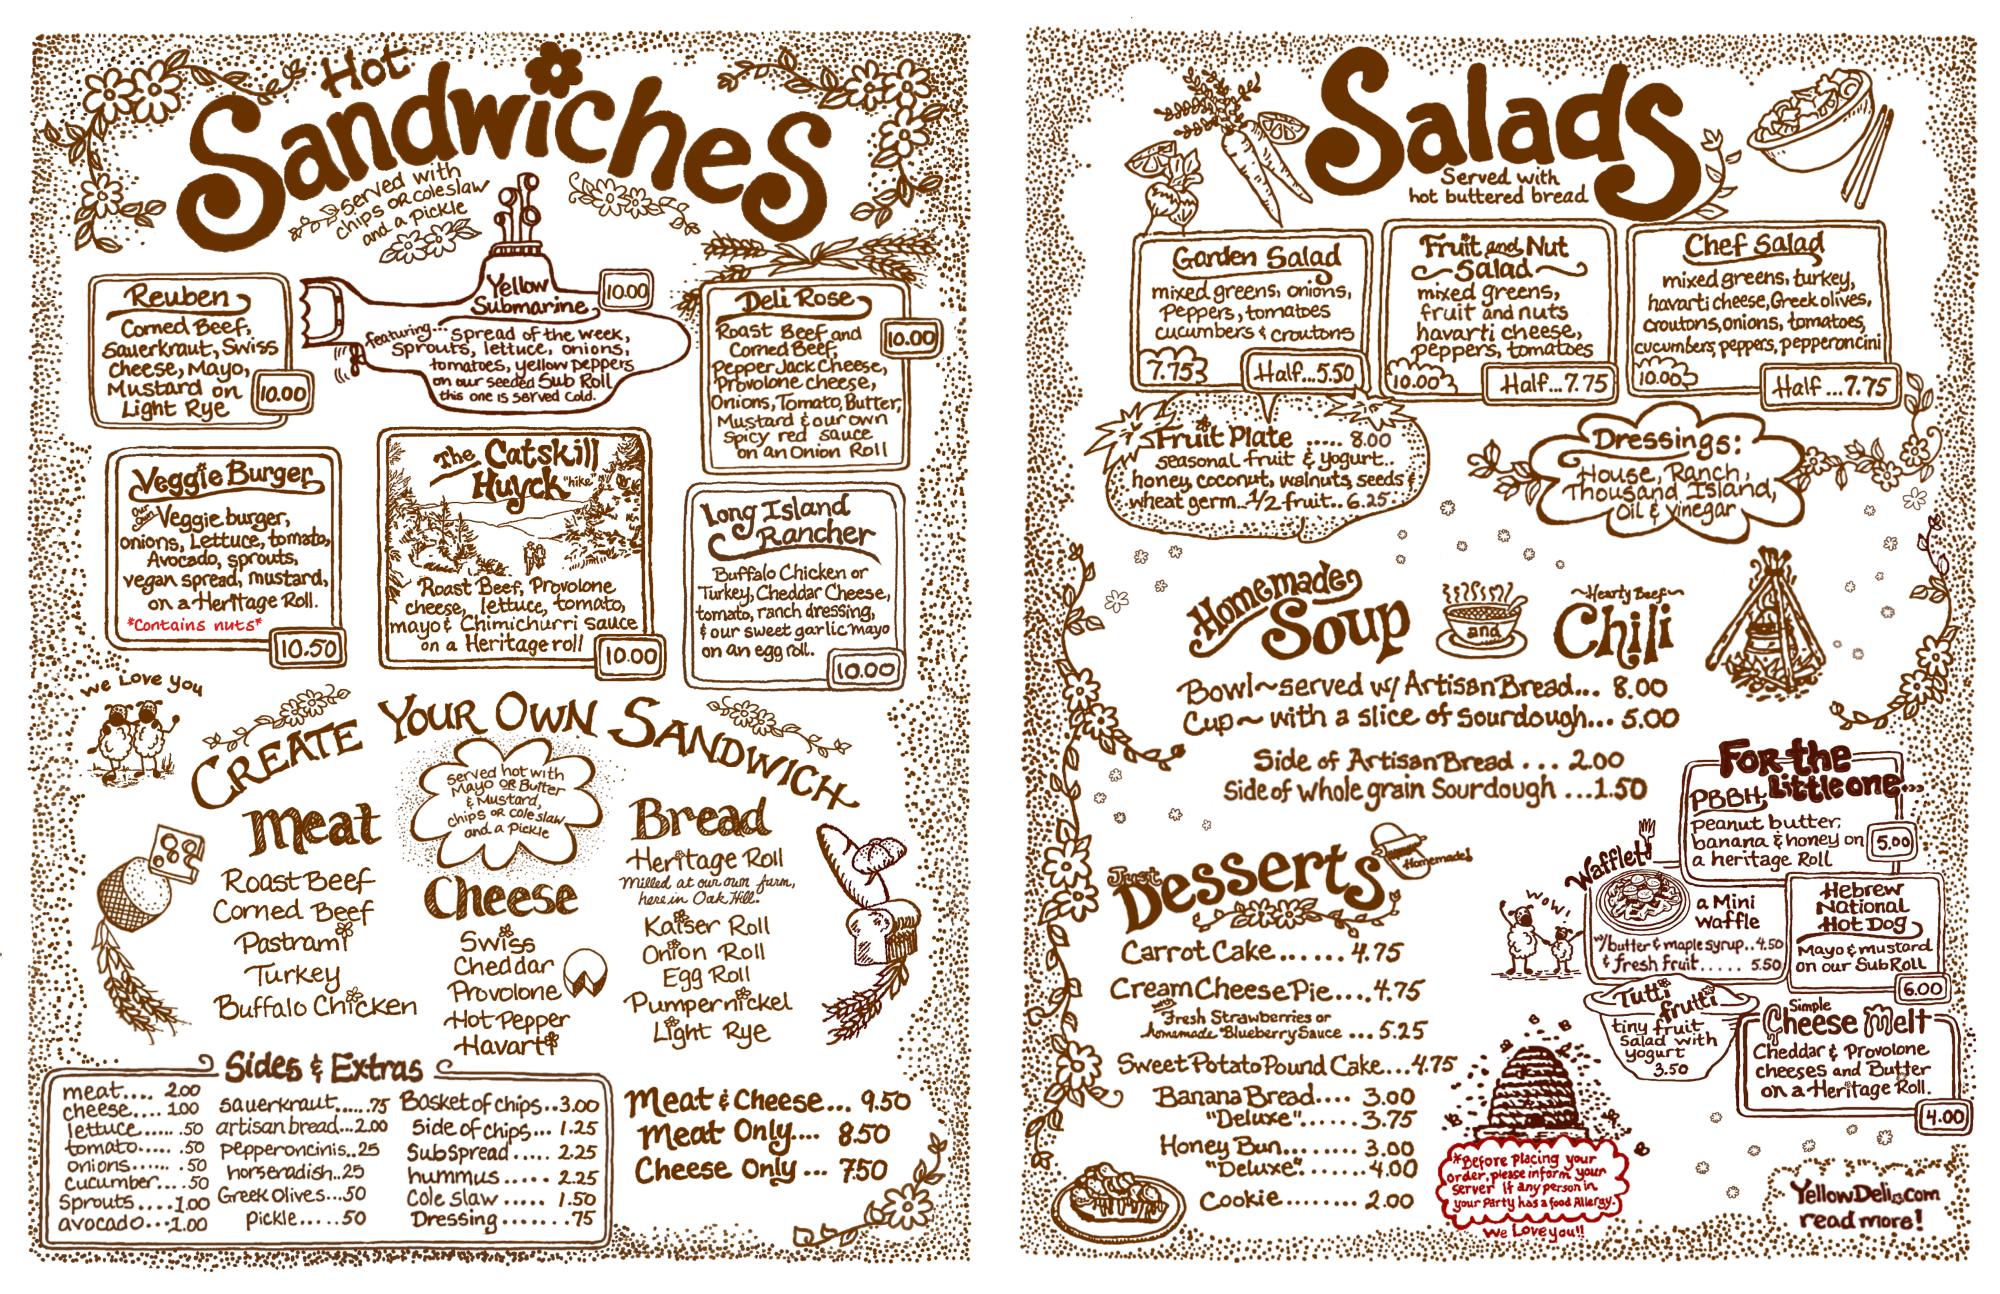 Hot
Sandwiches
served with
chips OR coleslaw
and a pickle
Reuben
Corned Beef,
Sauerkraut, Swiss
Cheese, Mayo,
Mustard on
Light Rye
10.00
Yellow
Submarine
10.00
featuring... Spread of the week,
Sprouts, lettuce, onions,
tomatoes, yellow peppers
on our seeded Sub Roll
this one is served cold.
Deli Rose
10.00
Roast Beef and
Corned Beef,
Pepper Jack Cheese,
Provolone cheese,
Onions, Tomato, Butter,
Mustard & our own
spicy red sauce
on an Onion Roll
Veggie Burger
Our Own Veggie burger,
onions, Lettuce, tomato,
Avocado, sprouts,
vegan spread, mustard,
on a Heritage Roll.
*Contains nuts*
10.50
The Catskill
Huyck "hike"
Roast Beef, Provolone
cheese, lettuce, tomato,
mayo & Chimichurri sauce
on a Heritage roll
10.00
Long Island
Rancher
Buffalo Chicken or
Turkey, Cheddar Cheese,
tomato, ranch dressing,
& our sweet garlic mayo
on an egg roll.
10.00
We Love you
CREATE YOUR OWN SANDWICH
served hot with
Mayo OR Butter
& Mustard,
chips OR coleslaw
and a pickle
Meat
Roast Beef
Corned Beef
Pastrami
Turkey
Buffalo Chicken
Cheese
Swiss
Cheddar
Provolone
Hot Pepper
Havarti
Bread
Heritage Roll
Milled at our own farm,
here in Oak Hill.
Kaiser Roll
Onion Roll
Egg Roll
Pumpernickel
Light Rye
Sides & Extras
meat.... 2.00
cheese.... 1.00
lettuce...... .50
tomato..... .50
onions....... .50
cucumber.... .50
Sprouts....1.00
avocado...1.00
sauerkraut......75
artisan bread...2.00
pepperoncinis..25
horseradish..25
Greek Olives...50
pickle.....50
Basket of chips..3.00
Side of chips... 1.25
Sub Spread..... 2.25
hummus..... 2.25
Cole slaw..... 1.50
Dressing........75
Meat & Cheese... 9.50
Meat Only.... 8.50
Cheese Only... 7.50
Salads
Served with
hot buttered bread
Garden Salad
mixed greens, onions,
Peppers, tomatoes
cucumbers & croutons
7.75
Half...5.50
Fruit and Nut
Salad
mixed greens,
fruit and nuts
havarti cheese,
peppers, tomatoes
10.00
Half...7.75
Chef Salad
mixed greens, turkey,
havarti cheese, Greek olives,
croutons, onions, tomatoes,
cucumbers, peppers, pepperoncini
10.00
Half...7.75
Fruit Plate ..... 8.00
seasonal fruit & yogurt.
honey, coconut, walnuts, seeds &
wheat germ...1/2 fruit.. 6.25
Dressings:
House, Ranch,
Thousand Island,
Oil & Vinegar
Homemade
Soup
and
~Hearty Beef~
Chili
Bowl~served w/ Artisan Bread... 8.00
Cup~ with a slice of sourdough... 5.00
Side of Artisan Bread ... 2.00
Side of whole grain Sourdough ...1.50
Just
Desserts
Homemade!
Carrot Cake....... 4.75
Cream Cheese Pie....4.75
with Fresh Strawberries or
homemade Blueberry Sauce ... 5.25
Sweet Potato Pound Cake...4.75
Banana Bread.... 3.00
"Deluxe"......3.75
Honey Bun........ 3.00
"Deluxe"......4.00
Cookie ..... 2.00
For the
Little one...
PBBH
peanut butter,
banana & honey on
a heritage Roll
5.00
Wafflet
a Mini
Waffle
w/butter & maple syrup..4.50
& fresh fruit..... 5.50
WOW!
Hebrew
National
Hot Dog
Mayo & mustard
on our Sub Roll
6.00
Tutti
frutti
tiny fruit
salad with
yogurt
3.50
Simple
Cheese Melt
Cheddar & Provolone
cheeses and Butter
on a Heritage Roll.
4.00
*Before placing your
order, please inform your
server if any person in
your Party has a food Allergy.
We Love you!!
YellowDeli.com
read more!